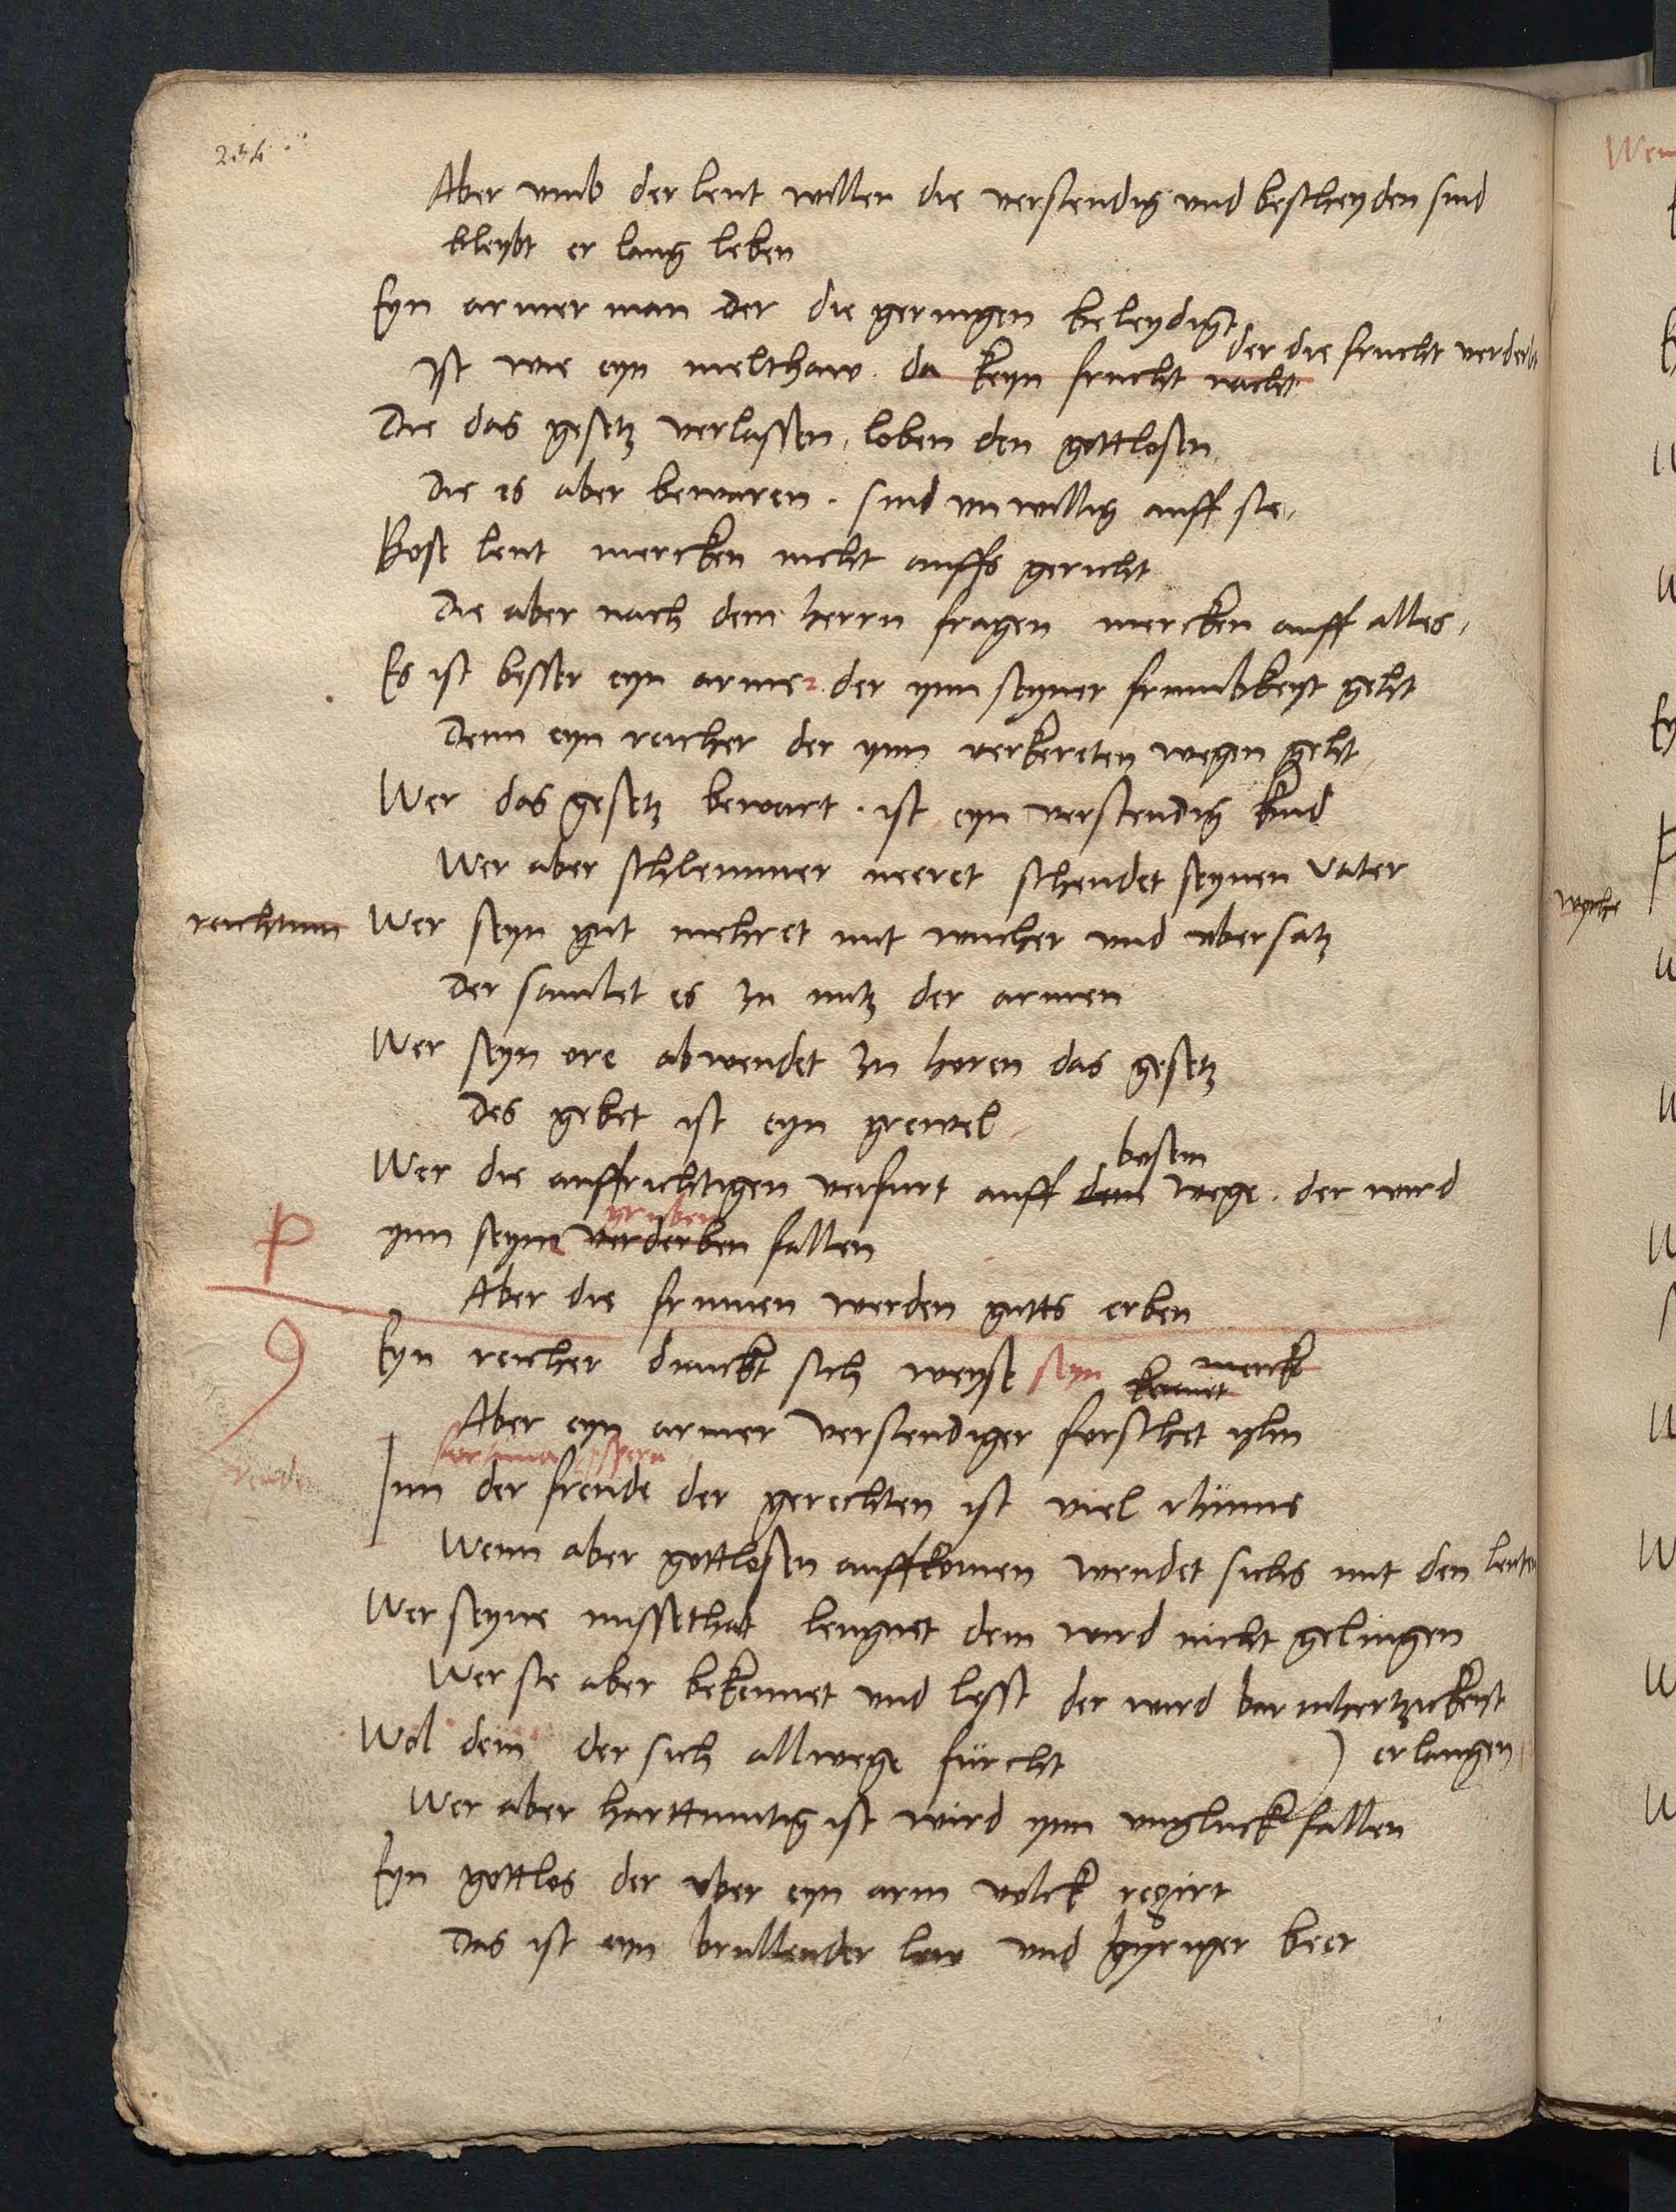 234
Aber umb der leut willen die verstendig und bescheyden sind
bleybt er lang leben
Eyn armer man der die geringen beleydigt
der die frucht verderbt
ist wie eyn melthaw. da keyn frucht nacht
Die das gesetz verlassen, loben den gottlosen
die es aber bewaren. sind unwillig auff sie,
Bose leut mercken nicht auffs gericht
Die aber nach dem herrn fragen mercken auff alles,
Es ist besser eyn armer der ynn seyner frumbkeyt geht
Denn eyn reicher der ynn verkereten wegen geht
Wer das gesetz bewart. ist eyn verstendig kind
Wer aber schlemmer neeret schendet seynen vater
reichtum Wer seyn gut mehret mit wucher und ubersatz
Der samlet es zu nutz der armen
Wer seyn ore abwendet zu horen das gesetz
Des gebet ist eyn grewel
bosem
Wer die auffrichtigen verfurt auff dem wege. der wird
gruben
P ynn seyne verderben fallen
Aber die frumen werden guts erben
9 Eyn reicher dunckt sich weyse seyn kennet merck
Aber eyn armer verstendiger forschet yhn
fortuna prospera
freude Inn der freude der gerechten ist viel rhumes
Wenn aber gottlosen auffkomen wendet sichs mit den leuten
Wer seyne missethat leugnet dem wird nicht gelingen
Wer sie aber bekennet und lesst der wird barmhertzickeyt
) erlangen
Wol dem der sich allwege fürcht
Wer aber hartmutig ist wird ynn ungluck fallen
Eyn gottlos der uber eyn arm volck regirt
Das ist eyn brullender lew und gyriger beer